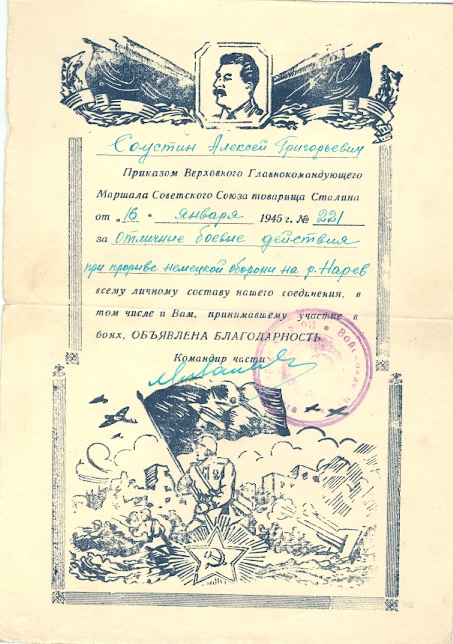 Соустин Алексей Григорьевич
Приказом Верховного Главнокомандующего
Маршала Советского Союза товарища Сталина
от „16" января 1945 г. № 221
за Отличные боевые действия
при прорыве немецкой оборони на р. Надев
всему личному составу нашего соединения, в
том числе и Вам, принимавшему участие в
боях, ОБЪЯВЛЕНА БЛАГОДАРНОСТЬ.
Командир части
Войсковая